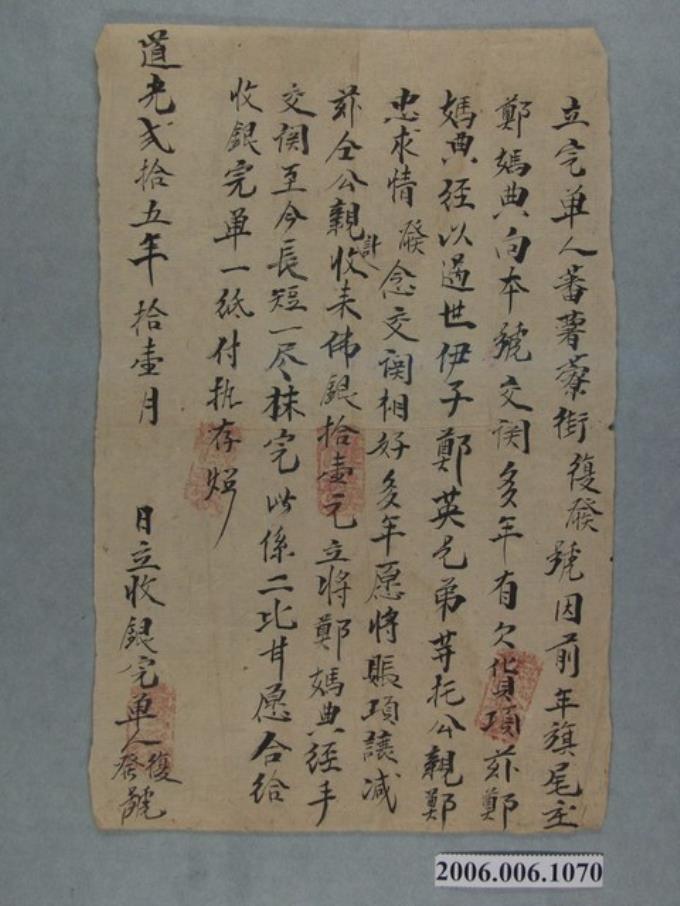 立完单人蕃薯藔街復發號因前年旗尾庄
鄭媽典向本號交関多年有欠貨項茲鄭
媽典经以过世伊子鄭英兄弟等托公親鄭
忠求情發念交関相好多年愿將賬項讓减
茲仝公親計收来佛銀拾壹元立將鄭媽典经手
交関至今長短一尽抹完此係二比甘愿合給
收銀完单一紙付执存炤
道光弍拾五年拾壹月 日立收銀完单人復發號
2006.006.1070